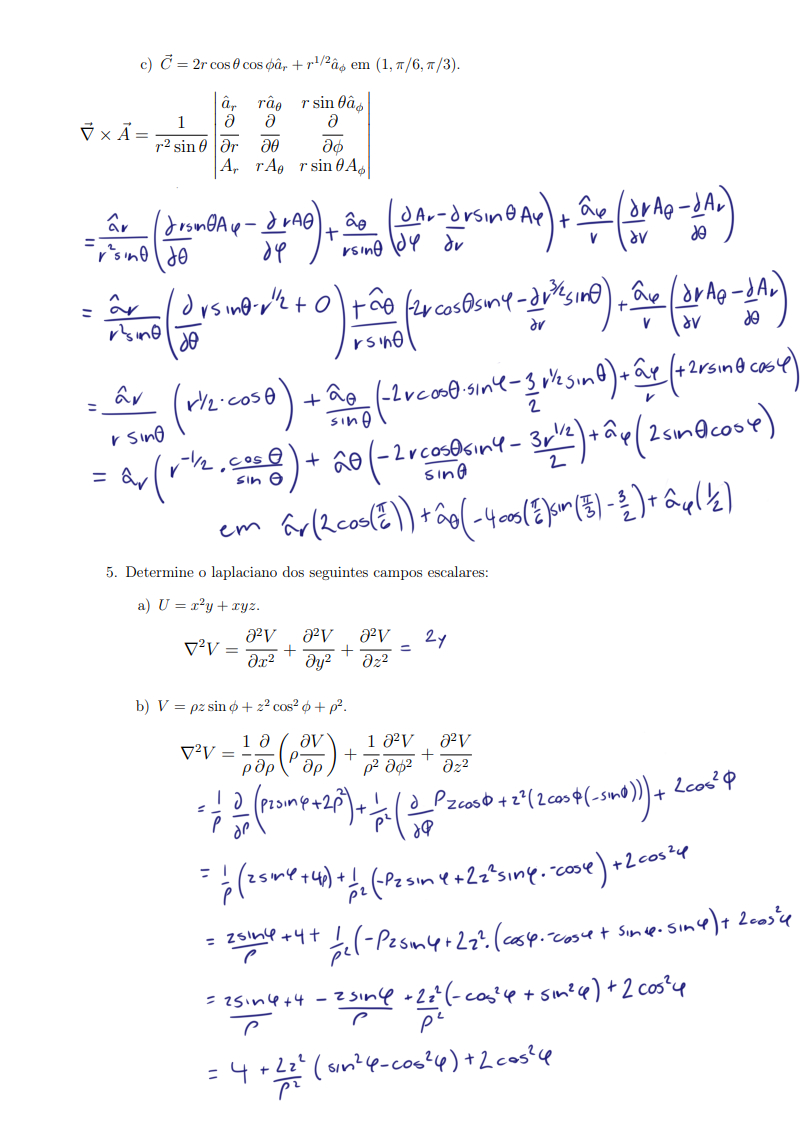 c) C⃗ = 2r cos θ cos ϕâ_r + r^{1/2}â_ϕ em (1, π/6, π/3).
∇⃗ × A⃗ = 1/(r² sin θ) | â_r  râ_θ  r sin θâ_ϕ ; ∂/∂r  ∂/∂θ  ∂/∂ϕ ; A_r  rA_θ  r sin θA_ϕ |
= âr/(r²sinθ) (∂rsinθAφ/∂θ − ∂rAθ/∂φ) + âθ/(rsinθ) (∂Ar/∂φ − ∂rsinθAφ/∂r) + âφ/r (∂rAθ/∂r − ∂Ar/∂θ)
= âr/(r²sinθ) (∂/∂θ rsinθ·r^{1/2} + 0) + âθ/(rsinθ) (−2rcosθsinφ − ∂r^{3/2}sinθ/∂r) + âφ/r (∂rAθ/∂r − ∂Ar/∂θ)
= âr/(r sinθ) (r^{1/2}·cosθ) + âθ/(sinθ) (−2rcosθ·sinφ − 3/2 r^{1/2}sinθ) + âφ/r (+2rsinθcosφ)
= âr (r^{-1/2} · cosθ/sinθ) + âθ (−2rcosθsinφ/sinθ − 3r^{1/2}/2) + âφ (2sinθcosφ)
em âr(2cos(π/6)) + âθ(−4cos(π/6)sin(π/3) − 3/2) + âφ(1/2)
5. Determine o laplaciano dos seguintes campos escalares:
a) U = x²y + xyz.
∇²V = ∂²V/∂x² + ∂²V/∂y² + ∂²V/∂z² = 2y
b) V = ρz sin ϕ + z² cos² ϕ + ρ².
∇²V = 1/ρ ∂/∂ρ (ρ ∂V/∂ρ) + 1/ρ² ∂²V/∂ϕ² + ∂²V/∂z²
= 1/ρ ∂/∂ρ (ρzsinφ + 2ρ²) + 1/ρ² (∂/∂ϕ ρzcosϕ + z²(2cosϕ(−sinϕ))) + 2cos²ϕ
= 1/ρ (zsinφ + 4ρ) + 1/ρ² (−ρzsinφ + 2z²sinφ·−cosφ) + 2cos²φ
= zsinφ/ρ + 4 + 1/ρ² (−ρzsinφ + 2z²·(cosφ·−cosφ + sinφ·sinφ) + 2cos²φ
= zsinφ/ρ + 4 − zsinφ/ρ + 2z²/ρ² (−cos²φ + sin²φ) + 2cos²φ
= 4 + 2z²/ρ² (sin²φ − cos²φ) + 2cos²φ